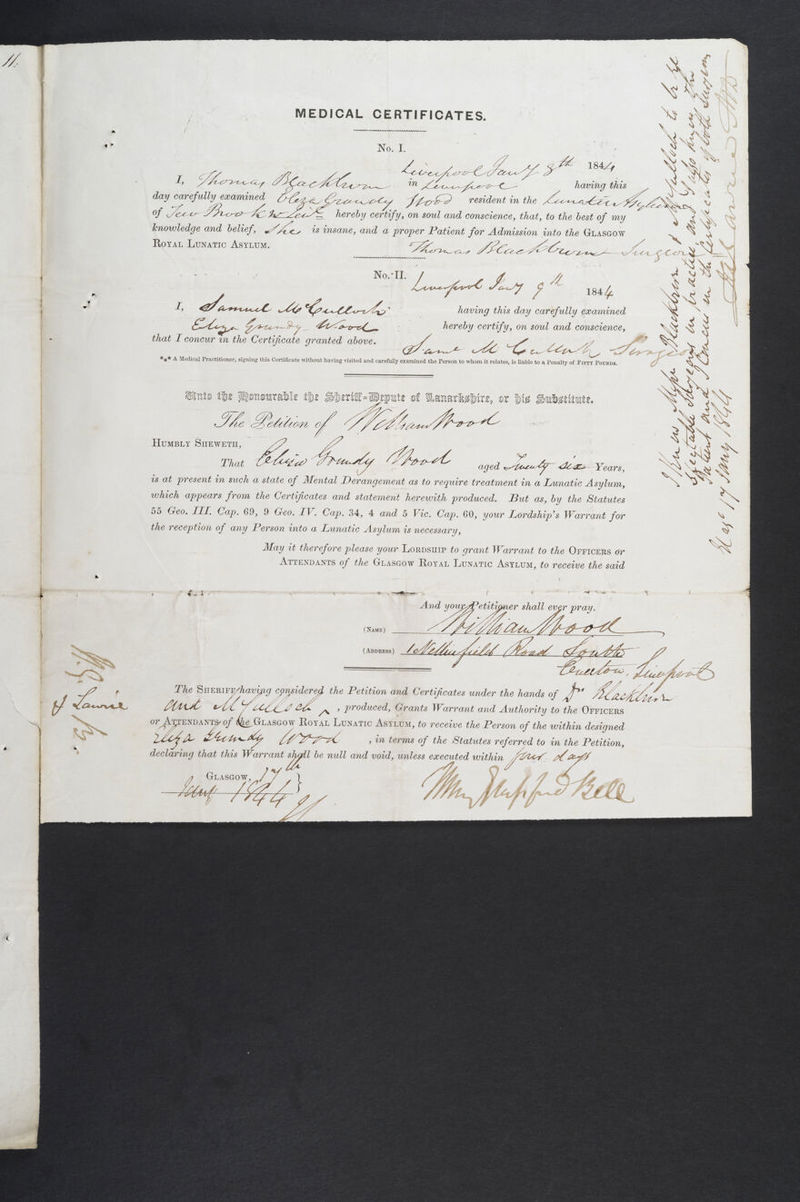 11.
MEDICAL CERTIFICATES.
No. I.
Liverpool Jany 8th 1844
I, Thomas Blackburn in Liverpool having this
day carefully examined Eliza Grundy Wood resident in the Lunatic Asylum
of hereby certify, on soul and conscience, that, to the best of my
knowledge and belief, She is insane, and a proper Patient for Admission into the GLASGOW
ROYAL LUNATIC ASYLUM.
Thomas Blackburn Surgeon
No. II.
Liverpool Jany 9th 1844
I, Samuel McCulloch having this day carefully examined
Eliza Grundy Wood hereby certify, on soul and conscience,
that I concur in the Certificate granted above.
Saml McCulloch Surgeon
*** A Medical Practitioner, signing this Certificate without having visited and carefully examined the Person to whom it relates, is liable to a Penalty of FIFTY POUNDS.
Unto the Honourable the Sheriff-Depute of Lanarkshire, or his Substitute.
The Petition of William Wood
HUMBLY SHEWETH,
That Eliza Grundy Wood aged Twenty six Years,
is at present in such a state of Mental Derangement as to require treatment in a Lunatic Asylum,
which appears from the Certificates and statement herewith produced. But as, by the Statutes
55 Geo. III. Cap. 69, 9 Geo. IV. Cap. 34, 4 and 5 Vic. Cap. 60, your Lordship's Warrant for
the reception of any Person into a Lunatic Asylum is necessary,
May it therefore please your LORDSHIP to grant Warrant to the OFFICERS or
ATTENDANTS of the GLASGOW ROYAL LUNATIC ASYLUM, to receive the said
And your Petitioner shall ever pray.
(NAME) William Wood
(ADDRESS) Netherfield Road South
Everton, Liverpool
The SHERIFF having considered the Petition and Certificates under the hands of Dr Blackburn
and McCulloch, produced, Grants Warrant and Authority to the OFFICERS
or ATTENDANTS of the GLASGOW ROYAL LUNATIC ASYLUM, to receive the Person of the within designed
Eliza Grundy Wood, in terms of the Statutes referred to in the Petition,
declaring that this Warrant shall be null and void, unless executed within four days
GLASGOW, 17th
Jany 1844
Bell
I know Messrs Blackburn & McCulloch to be
respectable Surgeons in practice, and The
Patient and I concur in the Certificates of both Surgeons
17 Jany 1844